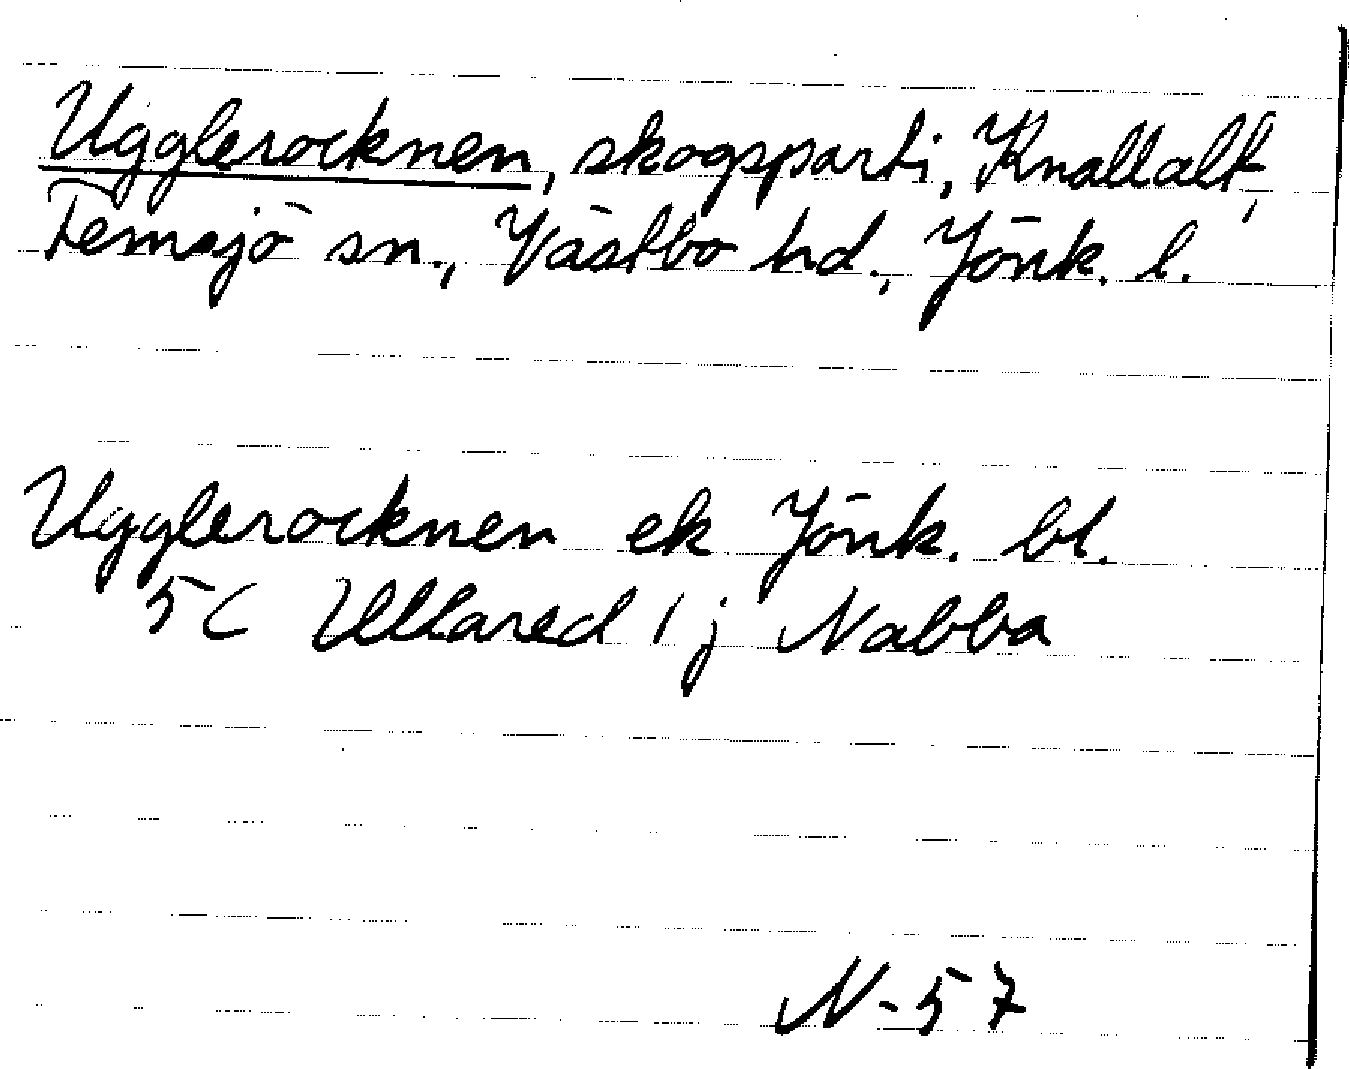 Ugglerocknen, skogsparti, Knallalt,
Femsjö sn., Västbo hd., Jönk. l.
Ugglerocknen ek Jönk. bl.
5C Ullared 1j Nabba
N-57